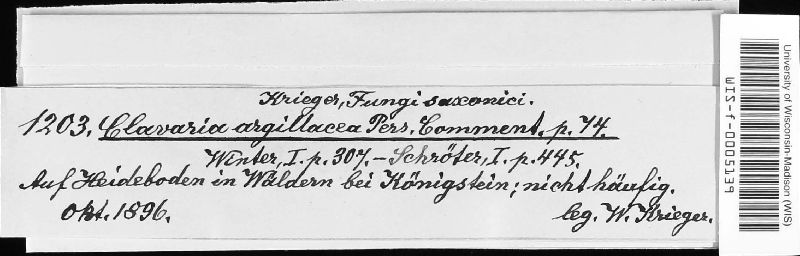 Krieger, Fungi saxonici.
1203. Clavaria argillacea Pers. Comment. p. 74.
Winter, I. p. 307. – Schröter, I. p. 445.
Auf Heideboden in Wäldern bei Königstein; nicht häufig.
Okt. 1896.
leg. W. Krieger.
University of Wisconsin-Madison (WIS)
WIS-f-0005139